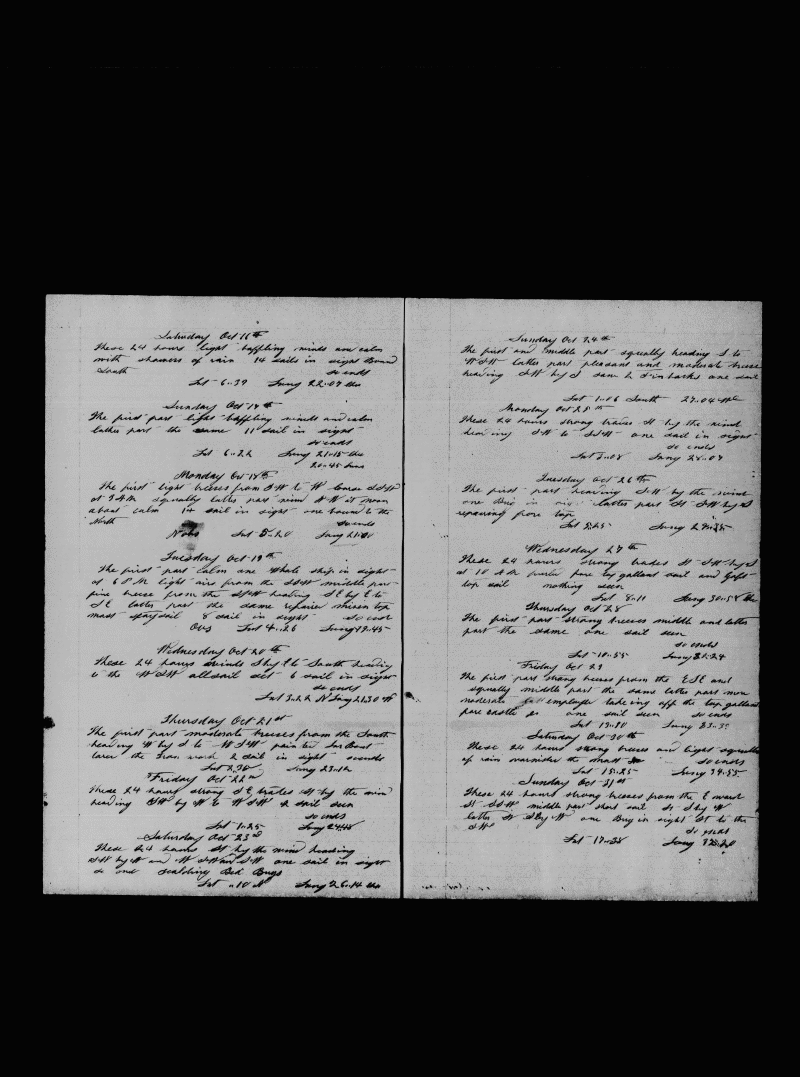 Saturday Oct 16th
These 24 hours light baffling winds and calm
with showers of rain 14 sails in sight Bound
South so ends
Lat 6..39 Long 22.09
Sunday Oct 17th
The first part light baffling winds and calm
latter part the same 11 sail in sight
so ends
Lat 6..22 Long 21..15
20..45
Monday Oct 18th
The first light breeses from SW to W course SSW
at 9 AM squally latter part wind at Noon
about calm 14 sail in sight one bound to the
North so ends
No obs Lat 5..20 Long
Tuesday Oct 19th
The first part calm one Whale ship in sight
at 6 PM light airs from the SSW middle part
fine breese from the SSW heading SE by E to
SE latter part the same repaired mizen top
mast stay sail 8 sail in sight so ends
Obs Lat 4..26 Long 19..45
Wednesday Oct 20th
These 24 hours winds S by E to South heading
to the WSW all sail set 6 sail in sight
so ends
Lat 3..22 N Long 21.30 W
Thursday Oct 21st
The first part moderate breeses from the South
heading W by S to WSW painted Boat
the Iron work 2 sail in sight so ends
Lat 2.36 Long 23..12
Friday Oct 22nd
These 24 hours strong SE trades by the wind
heading SW by W to WSW 2 sail seen
so ends
Lat 1..25 Long
Saturday Oct 23d
These 24 hours by the wind heading
SW by W and WSW one sail in sight
so ends scalding Bed Bugs
Lat ..10 N Long 26..14
Sunday Oct 24th
The first and middle part squally heading S to
WSW latter part pleasant and moderate breese
heading SW by S one sail
Lat 1..06 South 27.04
Monday Oct 25th
These 24 hours strong trades by the wind
heading SW to SSW one sail in sight
so ends
Lat 3..08 Long 28..09
Tuesday Oct 26th
The first part heading SW by the wind
one Brig in latter part SSW by S
repairing fore top
Lat 5..25 Long
Wednesday 27th
These 24 hours strong trades SW by S
at 10 AM fore top gallant sail and Gaft
top sail nothing seen
Lat 8..11 Long 30..58
Thursday Oct 28
The first part strong breeses middle and latter
part the same one sail seen
so ends
Lat 10..55 Long
Friday Oct 29
The first part strong breeses from the ESE and
squally middle part the same latter part more
moderate employed takeing off the top gallant
fore castle one sail seen so ends
Lat Long
Saturday Oct 30th
These 24 hours strong breeses and light squalls
of rain varnished the so ends
Lat 15..25 Long 34..55
Sunday Oct 31st
These 24 hours strong breeses from the E ward
SSW middle part short sail S by W
latter S by W one Brig in sight to the
SW so ends
Lat 17..38 Long